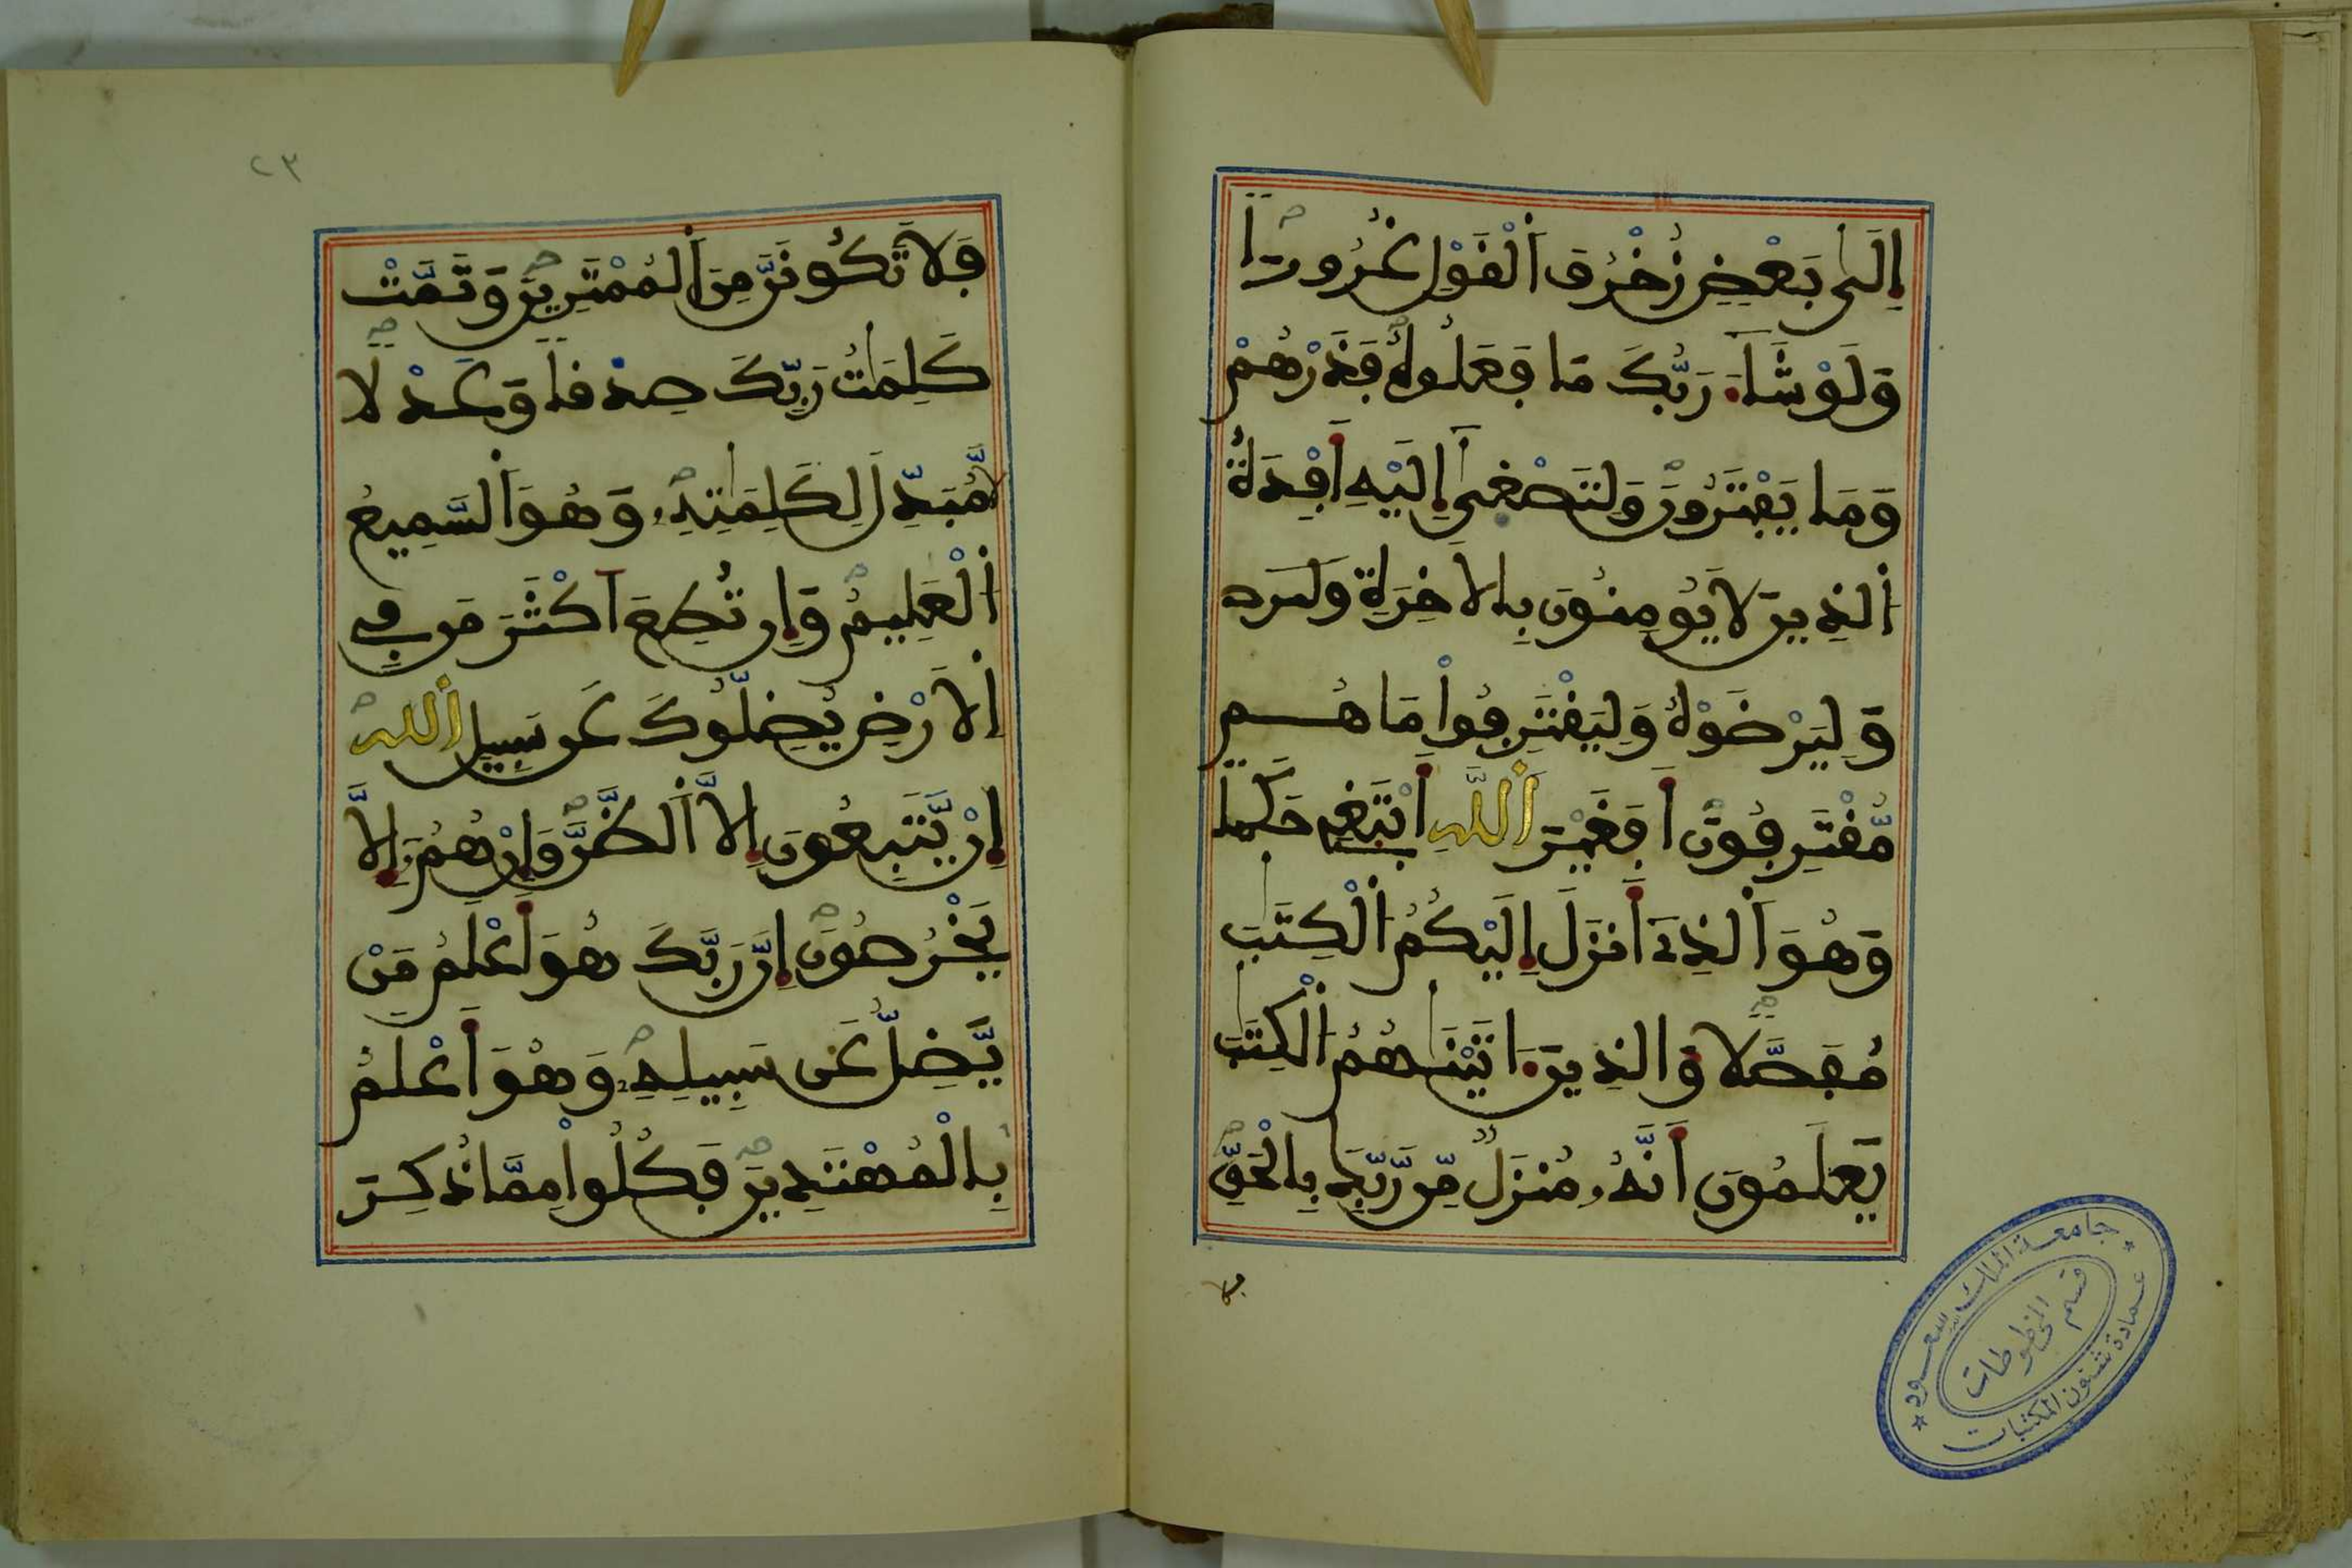 إِلَىٰ بَعْضٍ زُخْرُفَ ٱلْقَوْلِ غُرُورًا
وَلَوْ شَآءَ رَبُّكَ مَا فَعَلُوهُ فَذَرْهُمْ
وَمَا يَفْتَرُونَ وَلِتَصْغَىٰ إِلَيْهِ أَفْـِٕدَةُ
ٱلذِينَ لَا يُومِنُونَ بِالَاخِرَةِ
وَلِيَرْضَوْهُ وَلِيَقْتَرِفُوا۟ مَا هُم
مُّقْتَرِفُونَ أَفَغَيْرَ ٱللَّهِ أَبْتَغِے حَكَمًا
وَهُوَ ٱلذِےٓ أَنزَلَ إِلَيْكُمُ ٱلْكِتَٰبَ
مُفَصَّلًا وَالذِينَ ءَاتَيْنَٰهُمُ ٱلْكِتَٰبَ
يَعْلَمُونَ أَنَّهُۥ مُنزَلٌ مِّن رَّبِّكَ بِالْحَقِّ
فلا
٢٣
فَلَا تَكُونَنَّ مِنَ ٱلْمُمْتَرِينَ وَتَمَّتْ
كَلِمَٰتُ رَبِّكَ صِدْقًا وَعَدْلًا
لَّا مُبَدِّلَ لِكَلِمَٰتِهِۦ وَهُوَ ٱلسَّمِيعُ
ٱلْعَلِيمُ وَإِن تُطِعَ اَكْثَرَ مَن فِے
ٱلَارْضِ يُضِلُّوكَ عَن سَبِيلِ ٱللَّهِ
إِنْ يَّتَّبِعُونَ إِلَّا ٱلظَّنَّ وَإِنْ هُمُۥٓ إِلَّا
يَخْرُصُونَ إِنَّ رَبَّكَ هُوَ أَعْلَمُ مَنْ
يَّضِلُّ عَن سَبِيلِهِۦ وَهُوَ أَعْلَمُ
بِالْمُهْتَدِينَ فَكُلُوا۟ مِمَّا ذُكِرَ
جامعة الملك سعود
قسم المخطوطات
عمادة شئون المكتبات